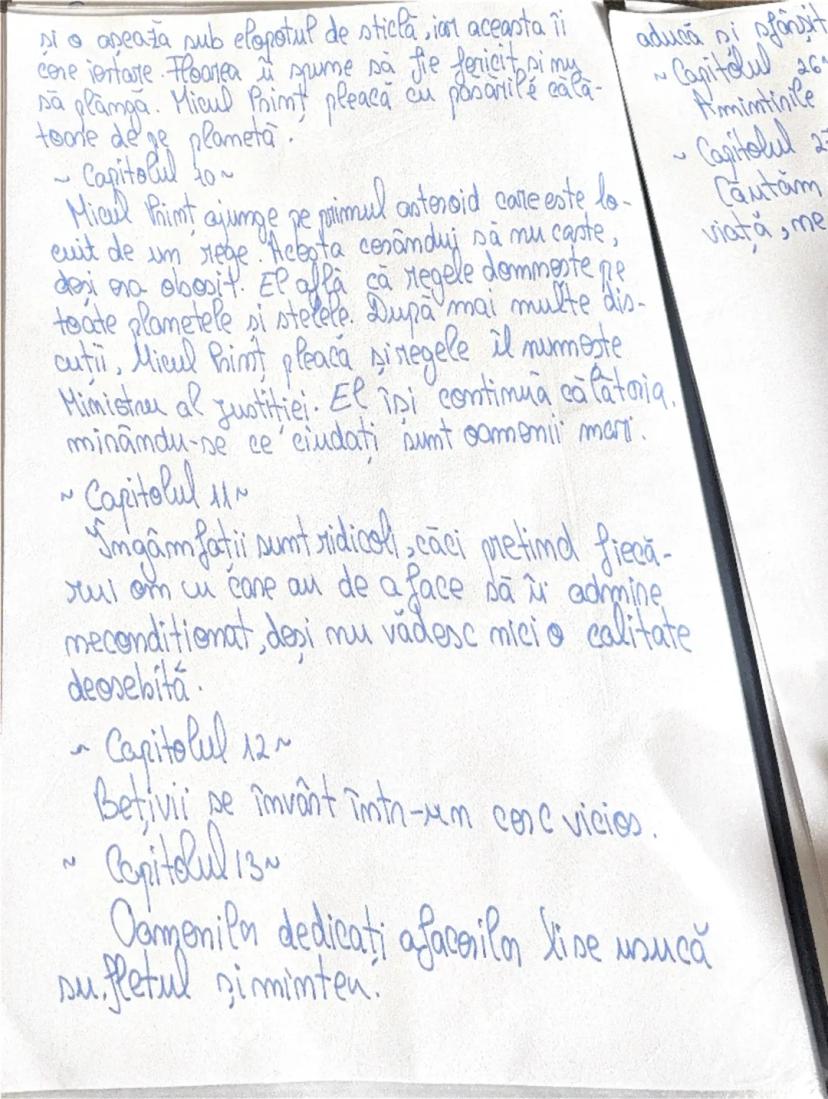 și o așează sub clopotul de sticlă, iar aceasta îi
cere iertare. Floarea îi spune să fie fericit și nu
să plângă. Micul Prinț pleacă cu păsările călă-
toare de pe planetă.
~ Capitolul 10 ~
Micul Prinț ajunge pe primul asteroid care este lo-
cuit de un rege. Acesta cerându-i să nu caște,
deși era obosit. El află că regele domnește pe
toate planetele si stelele. După mai multe dis-
cuții, Micul Prinț pleacă și regele îl numește
Ministru al justiției. El își continuă călătoria,
minându-se ce ciudați sunt oamenii mari.
~ Capitolul 11 ~
Îngâmfații sunt ridicoli, căci pretind fiecă-
rui om cu care au de a face să îi admire
necondiționat, deși nu vădesc nici o calitate
deosebită.
~ Capitolul 12 ~
Bețivii se învârt într-un cerc vicios.
~ Capitolul 13 ~
Oamenilor dedicați afacerilor li se usucă
sufletul și mintea.
aducă și sfârșit
~ Capitolul 26
Amintirile
~ Capitolul 2
Căutăm
viață, me